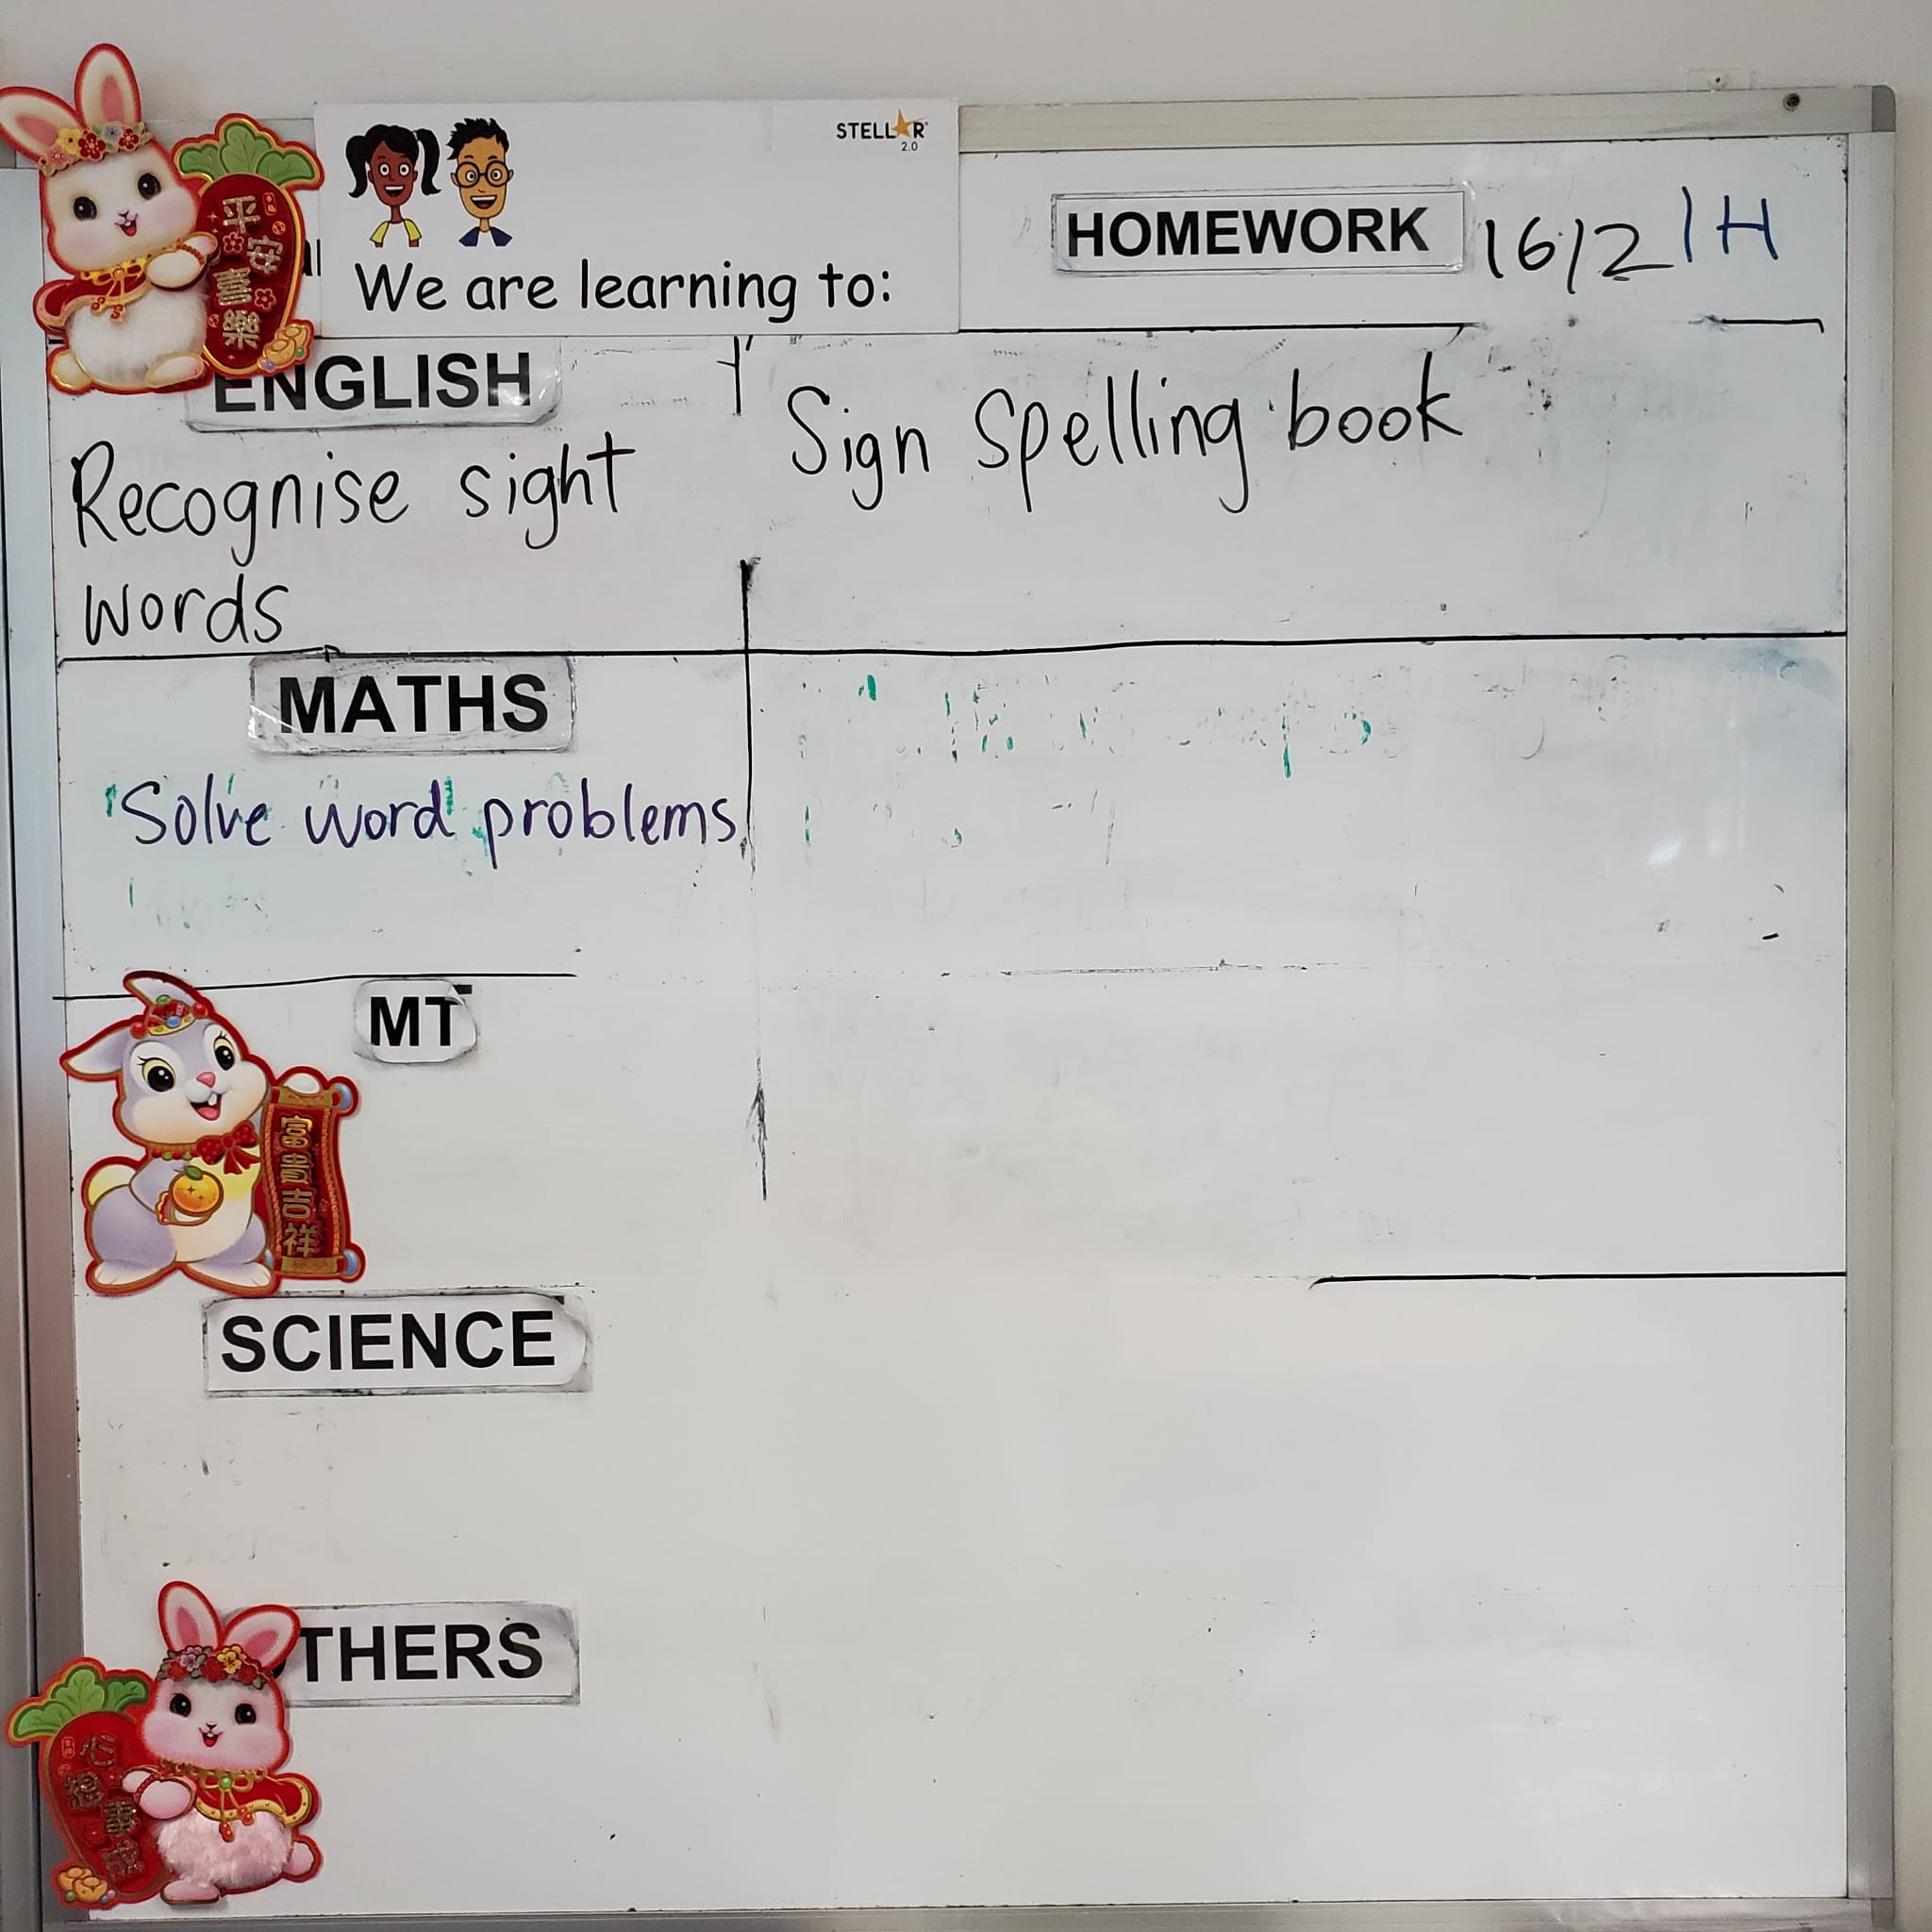 STELLAR
2.0
We are learning to:
HOMEWORK 16/2 1H
平安喜樂
ENGLISH
Recognise sight
words
Sign Spelling book
MATHS
Solve word problems
MT
富貴吉祥
SCIENCE
THERS
心想事成